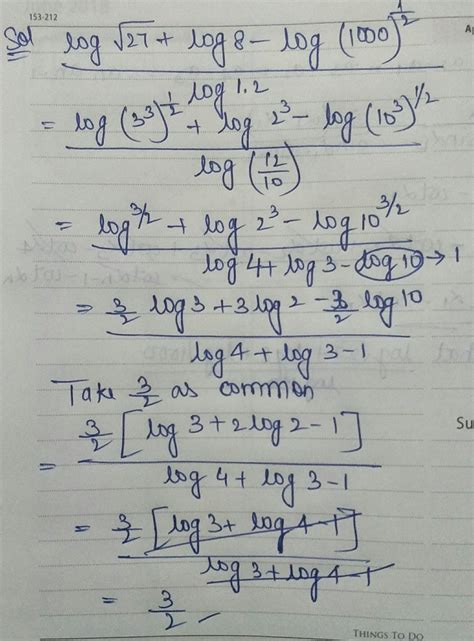 153-212
Sol log √27 + log 8 - log (1000)^1/2
log 1.2
= log (3³)^1/2 + log 2³ - log (10³)^1/2
log (12/10)
= log^3/2 + log 2³ - log 10^3/2
log 4 + log 3 - log 10 → 1
= 3/2 log 3 + 3 log 2 - 3/2 log 10
log 4 + log 3 - 1
Take 3/2 as common
= 3/2 [log 3 + 2 log 2 - 1]
log 4 + log 3 - 1
Su
= 3/2 [log 3 + log 4 - 1]
log 3 + log 4 - 1
= 3/2
THINGS TO DO